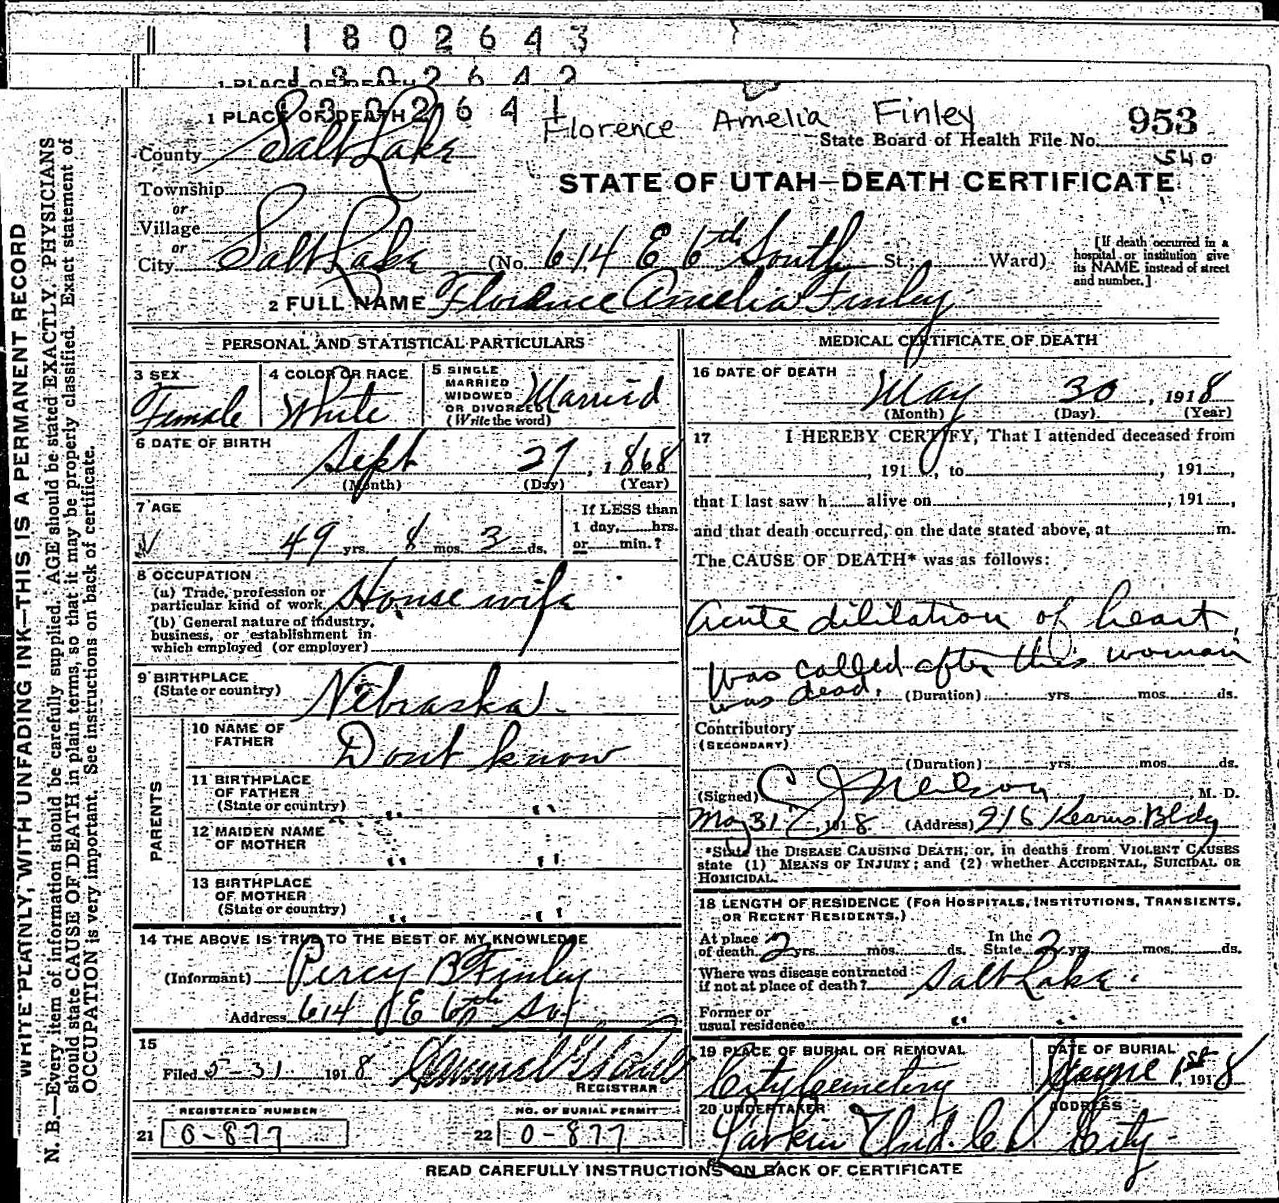 1802643
1802642
1802641
Florence Amelia Finley
1 PLACE OF DEATH
State Board of Health File No. 953
540
County Salt Lake
STATE OF UTAH—DEATH CERTIFICATE
Township
or
Village
or
City Salt Lake (No. 614 E 6th South St.; Ward)
[If death occurred in a hospital or institution give its NAME instead of street and number.]
2 FULL NAME Florence Amelia Finley
PERSONAL AND STATISTICAL PARTICULARS
3 SEX Female
4 COLOR OR RACE White
5 SINGLE MARRIED WIDOWED OR DIVORCED (Write the word) Married
6 DATE OF BIRTH
Sept 27, 1868
(Month) (Day) (Year)
7 AGE
49 yrs. 8 mos. 3 ds.
If LESS than 1 day, hrs. or min.?
8 OCCUPATION
(a) Trade, profession or particular kind of work House wife
(b) General nature of industry, business, or establishment in which employed (or employer)
9 BIRTHPLACE
(State or country) Nebraska
PARENTS
10 NAME OF FATHER Dont know
11 BIRTHPLACE OF FATHER (State or country) " "
12 MAIDEN NAME OF MOTHER " "
13 BIRTHPLACE OF MOTHER (State or country) " "
14 THE ABOVE IS TRUE TO THE BEST OF MY KNOWLEDGE
(Informant) Percy B Finley
Address 614 E 6th So
15
Filed 5-31 1918
REGISTRAR
REGISTERED NUMBER
21 0-877
NO. OF BURIAL PERMIT
22 0-877
MEDICAL CERTIFICATE OF DEATH
16 DATE OF DEATH
May 30, 1918
(Month) (Day) (Year)
17 I HEREBY CERTIFY, That I attended deceased from
, 191 , to , 191 ,
that I last saw h alive on , 191 ,
and that death occurred, on the date stated above, at m.
The CAUSE OF DEATH* was as follows:
Acute dililation of heart,
Was called after this woman
was dead. (Duration) yrs. mos. ds.
Contributory
(SECONDARY)
(Duration) yrs. mos. ds.
(Signed) C J Neilson M. D.
May 31, 1918 (Address) 216 Kearns Bldg
*State the DISEASE CAUSING DEATH, or, in deaths from VIOLENT CAUSES
state (1) MEANS OF INJURY; and (2) whether ACCIDENTAL, SUICIDAL OR
HOMICIDAL.
18 LENGTH OF RESIDENCE (FOR HOSPITALS, INSTITUTIONS, TRANSIENTS,
OR RECENT RESIDENTS.)
At place of death 2 yrs. mos. ds. In the State 2 yrs. mos. ds.
Where was disease contracted if not at place of death? Salt Lake.
Former or usual residence " "
19 PLACE OF BURIAL OR REMOVAL
City Cemetery
DATE OF BURIAL
1st 1918
20 UNDERTAKER
Larkin Und. Co
ADDRESS
City
READ CAREFULLY INSTRUCTIONS ON BACK OF CERTIFICATE
WRITE PLAINLY, WITH UNFADING INK—THIS IS A PERMANENT RECORD
N. B.—Every item of information should be carefully supplied. AGE should be stated EXACTLY. PHYSICIANS
should state CAUSE OF DEATH in plain terms, so that it may be properly classified. Exact statement of
OCCUPATION is very important. See instructions on back of certificate.